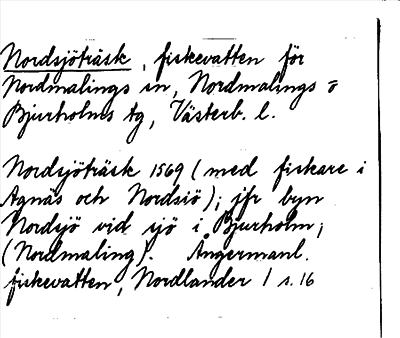 Nordsjöträsk, fiskevatten för
Nordmalings sn, Nordmalings o
Bjurholms tg, Västerb. l.
Nordsjöträsk 1569 (med fiskare i
Agnäs och Nordsiö); jfr byn
Nordsjö vid sjö i Bjurholm,
(Nordmaling). Ångermanl.
fiskevatten, Nordlander 1 s. 16